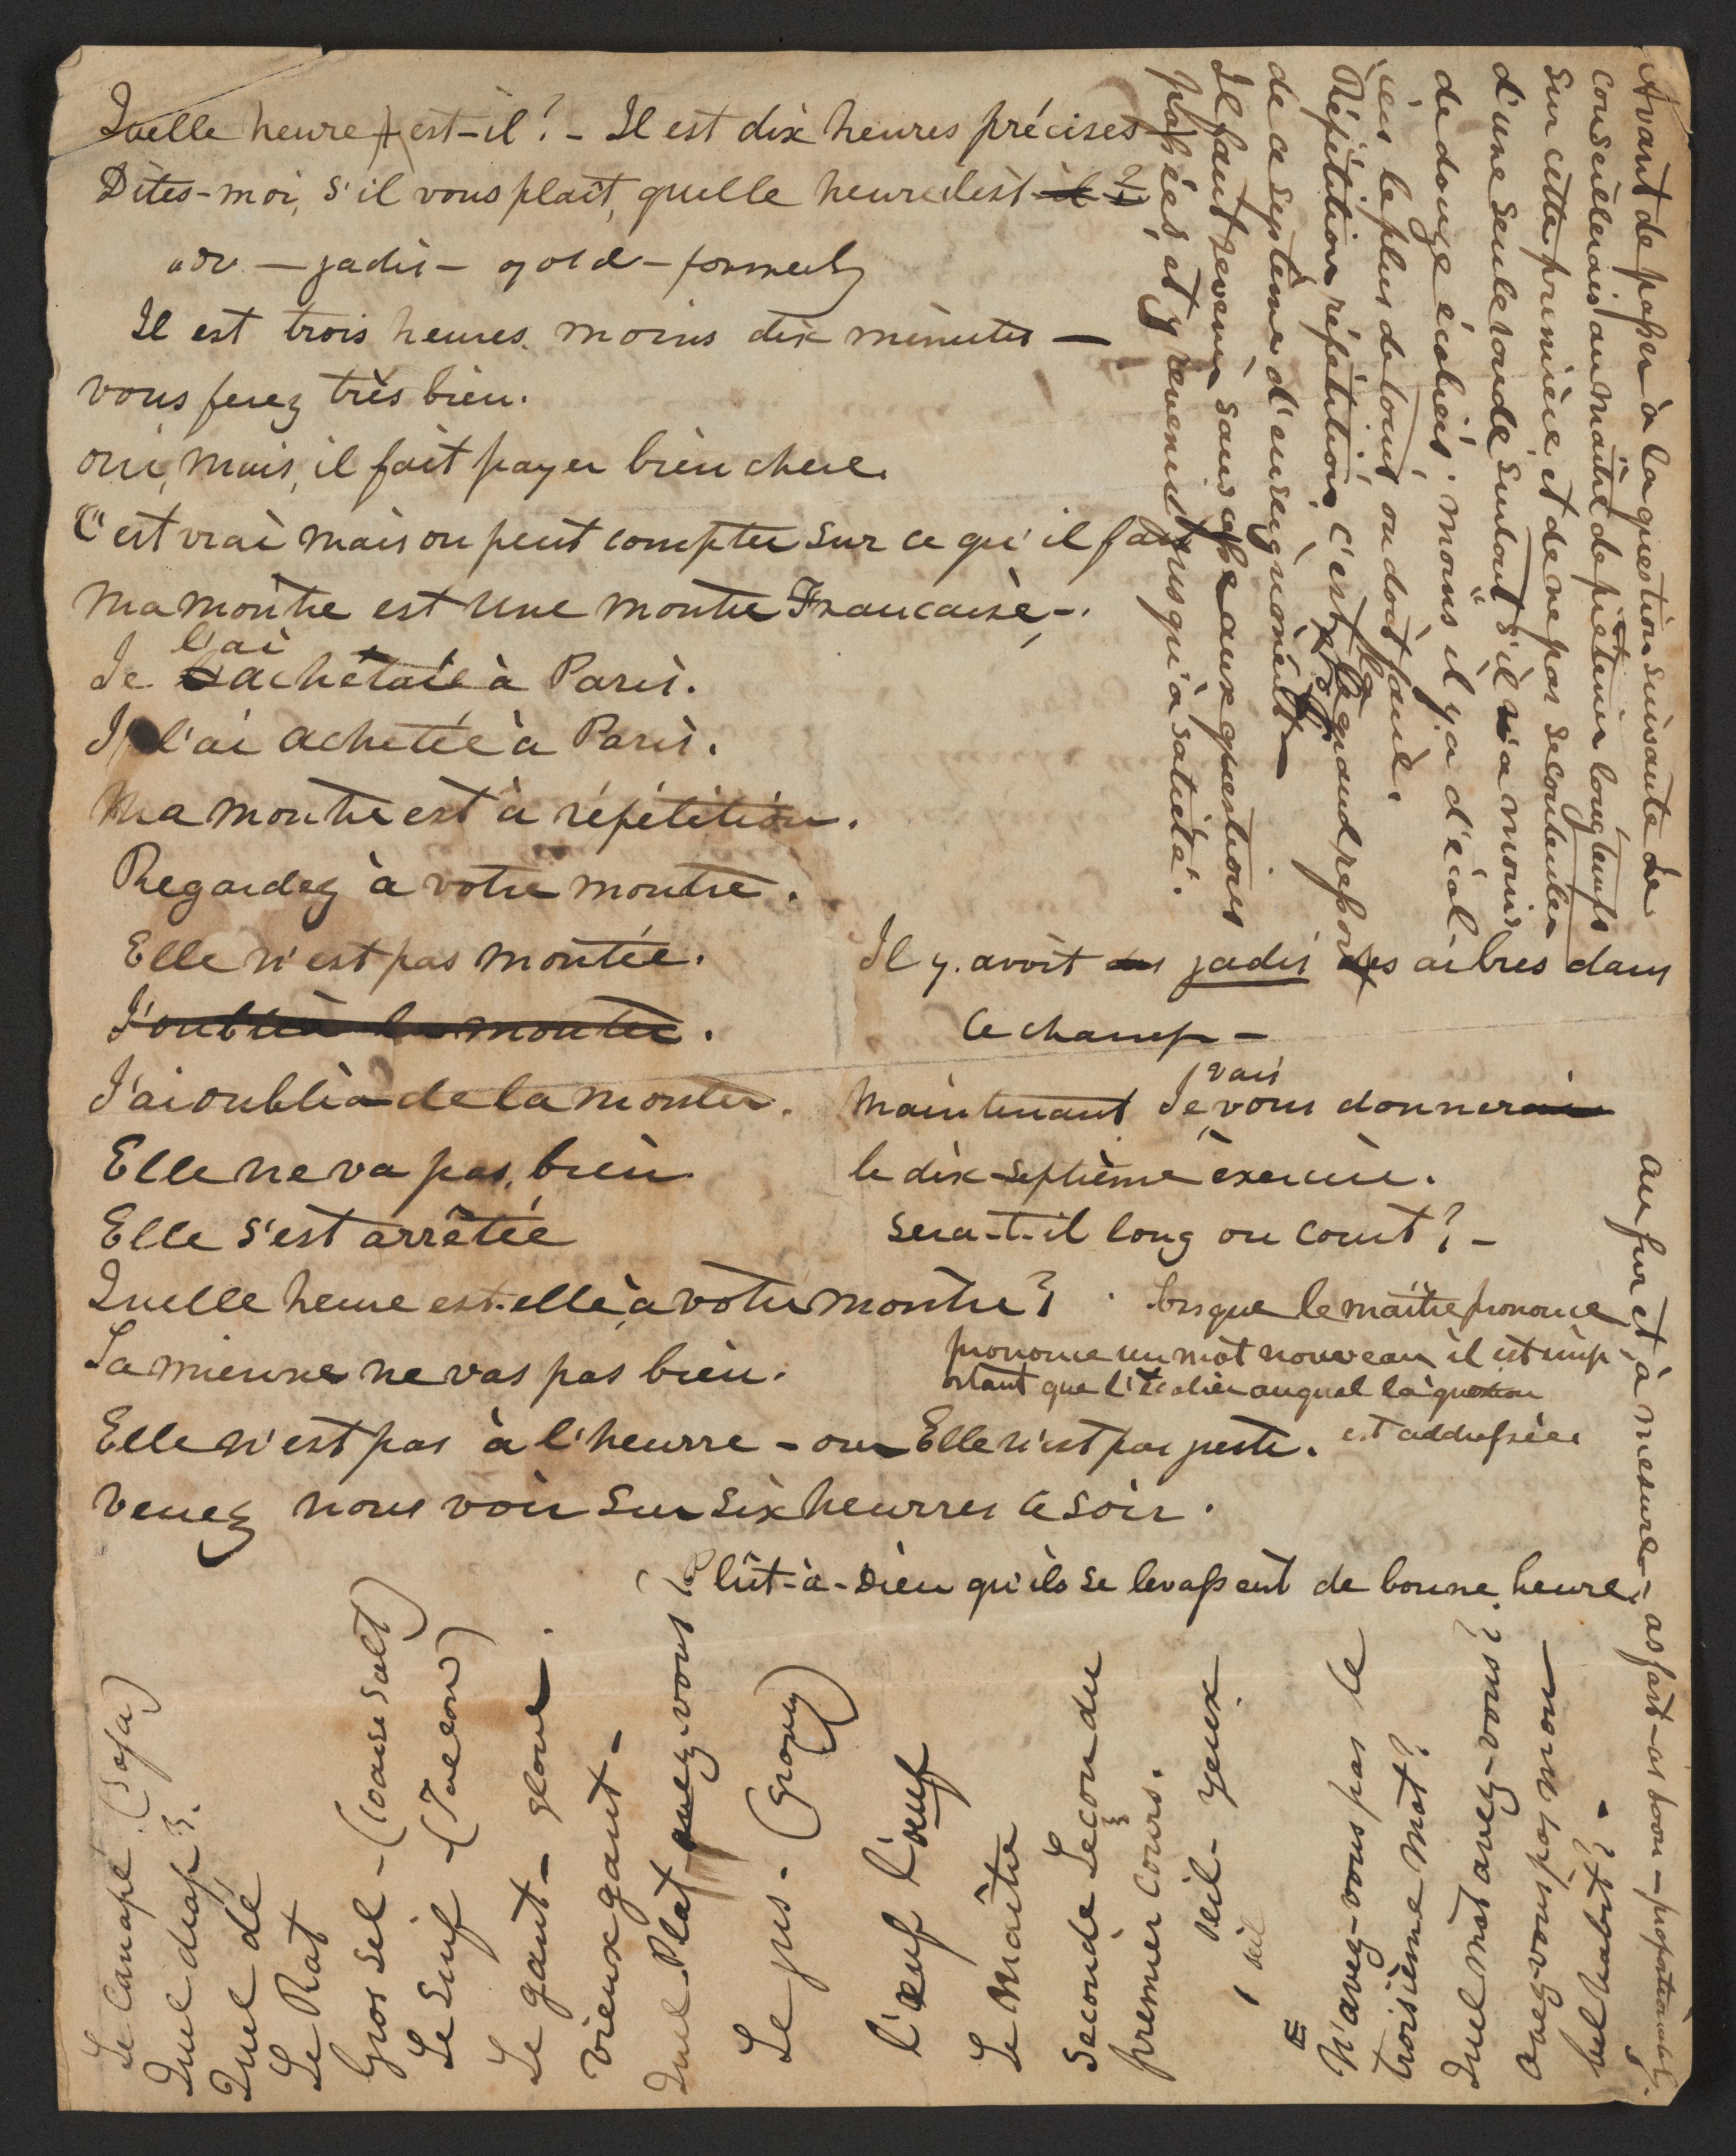 Quelle heure est-il? - Il est dix heures précises
Dites-moi, s'il vous plait, quelle heure il est
adv - jadis - of old - formerly
Il est trois heures moins dix minutes -
vous ferez très bien.
oui, mais, il fait payer bien chere.
C'est vrai mais on peut compter sur ce qu'il fait
Ma montre est une montre Francaise -.
l'ai
Je achetai à Paris.
Je l'ai achetée à Paris.
Ma montre est à répétition.
Regardez à votre montre.
Elle n'est pas montée.
J'oubliai la monter.
J'ai oublia de la monter.
Elle ne va pas bien
Elle s'est arrêtée
Quelle heure est-elle à votre montre?
La mienne ne vas pas bien.
Elle n'est pas à l'heurre - ou Elle n'est pas juste.
Venez nous voir sur six heurres ce soir.
Il y avoit jadis des arbres dans
ce champ -
vais
Maintenant Je vous donnerai
le dix-septième exercice.
Sera-t-il long ou court? -
lorsque le maître prononce
prononce un mot nouveau il est imp
ortant que l'écolier auquel la question
est addressée
Plût-à-Dieu qu'ils se levassent de bonne heure.
Avant de passer à la question suivante Je
conseillerais au maître de piétiner longtemps
sur cette première et de ne pas se contenter
d'une seule ronde surtout s'il n'a moins
de douze écoliers. moins il y a d'écol-
iers le plus de tours on doit faire.
Répétition répétition c'est le grand ressort
de ce système d'enseignement -
Il faut revenir sans cesse aux questions
passées, et y revenir jusqu'à satiété.
au fur et à mesure - as fast - as soon - proportionably.
Le Canapé (Sofa)
Quel drap?
Quel dé
Le Rat
Gros sel - (coarse salt)
Le Suif - (Tallow)
Le gant - glove.
Vieux gant -
Quel Plat avez-vous?
Le jus - (gravy)
l'œuf l'œuf
Le Maître
Seconde Leçon du
premier cours.
œil - yeux
œil
N'avez-vous pas le
troisième mot?
Quel mot avez-vous?
avez-vous pas mon
bel habit?